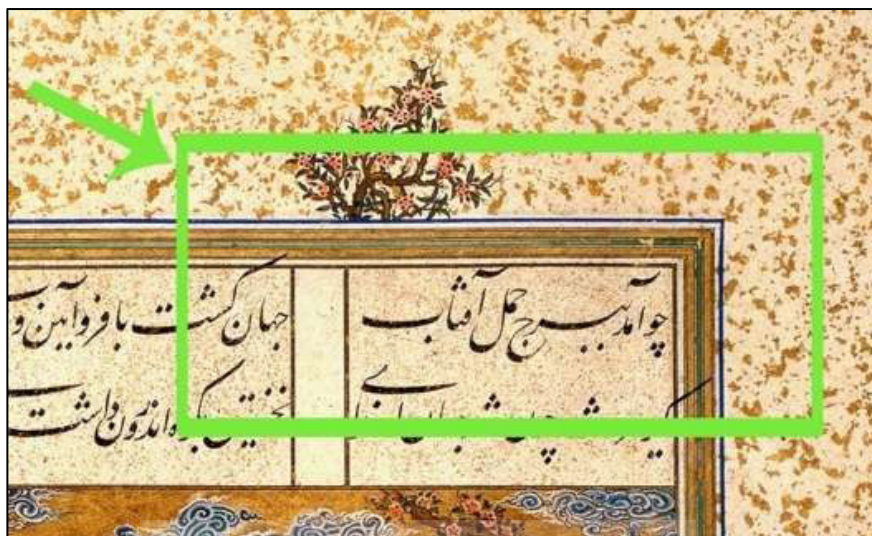 چو آمد ببرج حمل آفتاب جهان گشت با فر و آیین و
چون شد نخستین بکوه اندرون داشت